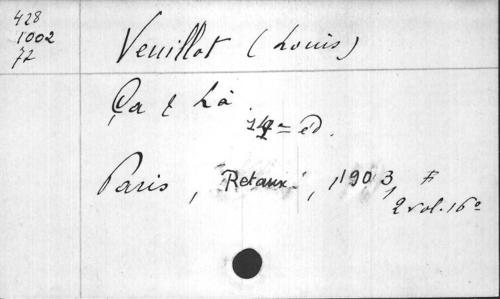 428
1002
72
Veuillot (Louis)
Ça & Là.
ed.
Paris, Retaux, 1903,
2 vol. 16º